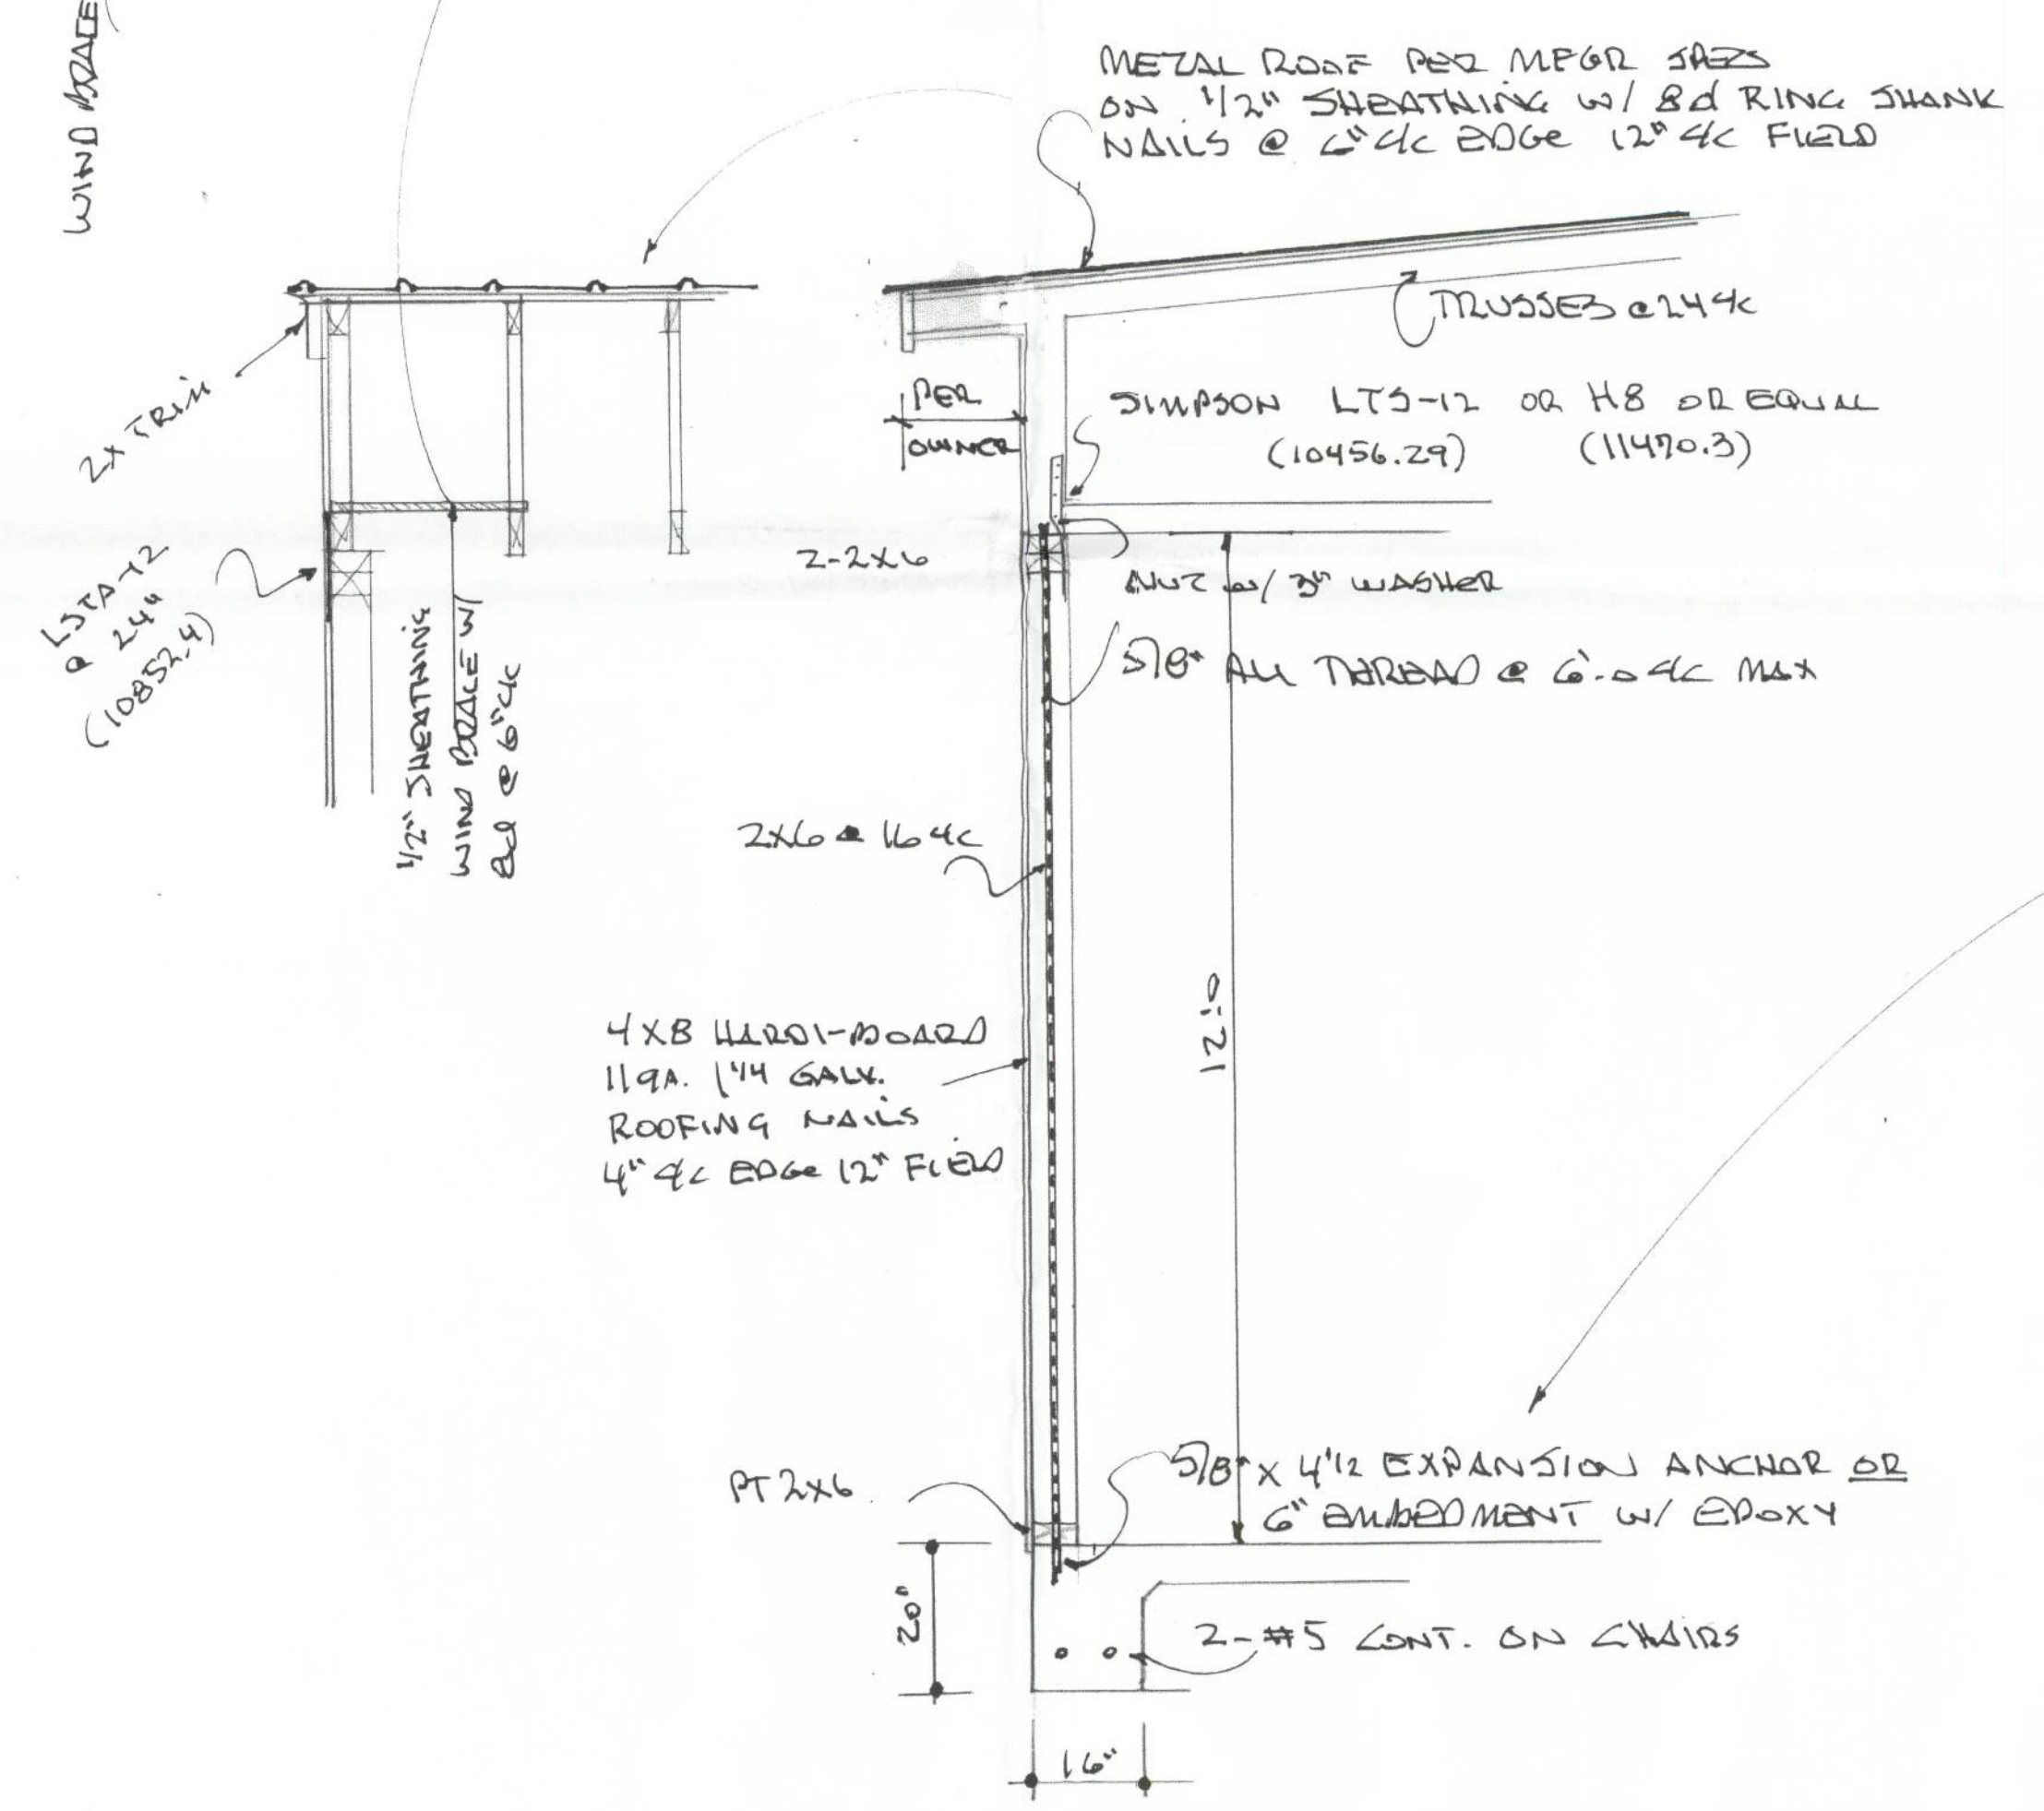 WIND BRACE
METAL ROOF PER MFGR SPECS
ON 1/2" SHEATHING W/ 8d RING SHANK
NAILS @ 6" c/c EDGE 12" c/c FIELD
TRUSSES @ 24 c/c
2X TRIM
PER
OWNER
SIMPSON LTS-12 OR H8 OR EQUAL
(10456.29) (11470.3)
2-2X6
NUT w/ 3" WASHER
LSTA-12
@ 24"
(10852.4)
5/8" ALL THREAD @ 6'-0 c/c MAX
1/2" SHEATHING
WIND BRACE W/
8d @ 6" c/c
2X6 @ 16 c/c
12'-0
4X8 HARDI-BOARD
11 GA. 1 1/4 GALV.
ROOFING NAILS
4" c/c EDGE 12" FIELD
PT 2X6
5/8" X 4 1/2 EXPANSION ANCHOR OR
6" EMBEDMENT W/ EPOXY
20"
2-#5 CONT. ON CHAIRS
16"